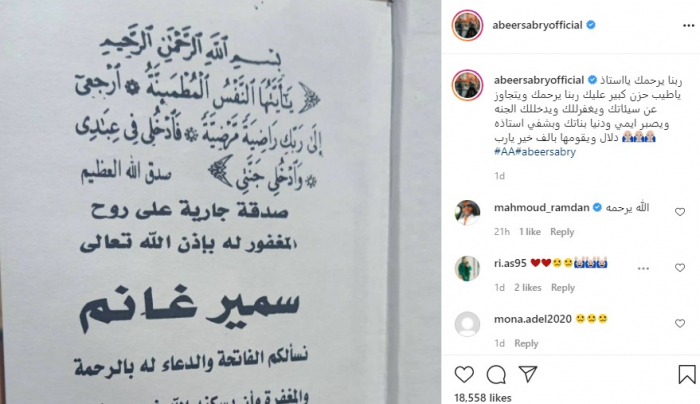 بسم الله الرحمن الرحيم
يا أيتها النفس المطمئنة ارجعي
إلى ربك راضية مرضية فادخلي في عبادي
وادخلي جنتي صدق الله العظيم
صدقة جارية على روح
المغفور له بإذن الله تعالى
سمير غانم
نسألكم الفاتحة والدعاء له بالرحمة
abeersabryofficial
abeersabryofficial ربنا يرحمك يااستاذ
ياطيب حزن كبير عليك ربنا يرحمك ويتجاوز
عن سيئاتك ويغفرلك ويدخلك الجنه
ويصبر ايمي ودنيا بناتك وبشفي استاذه
دلال ويقومها بالف خير يارب
#AA#abeersabry
1d
mahmoud_ramdan الله يرحمه
21h 1 like Reply
ri.as95
1d 2 likes Reply
mona.adel2020
1d Reply
18,558 likes